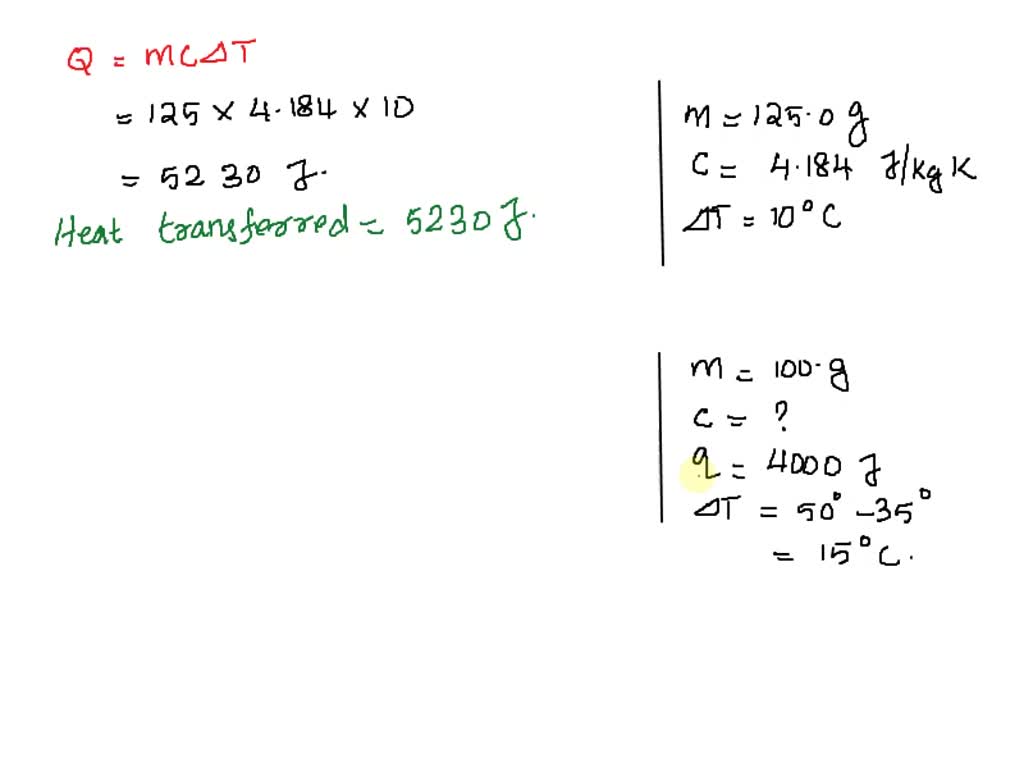 Q = MCΔT
= 125 × 4.184 × 10
= 5230 J.
Heat transferred = 5230 J.
m = 125.0 g
C = 4.184 J/kg K
ΔT = 10°C
m = 100.g
C = ?
q = 4000 J
ΔT = 50° - 35°
= 15°C.